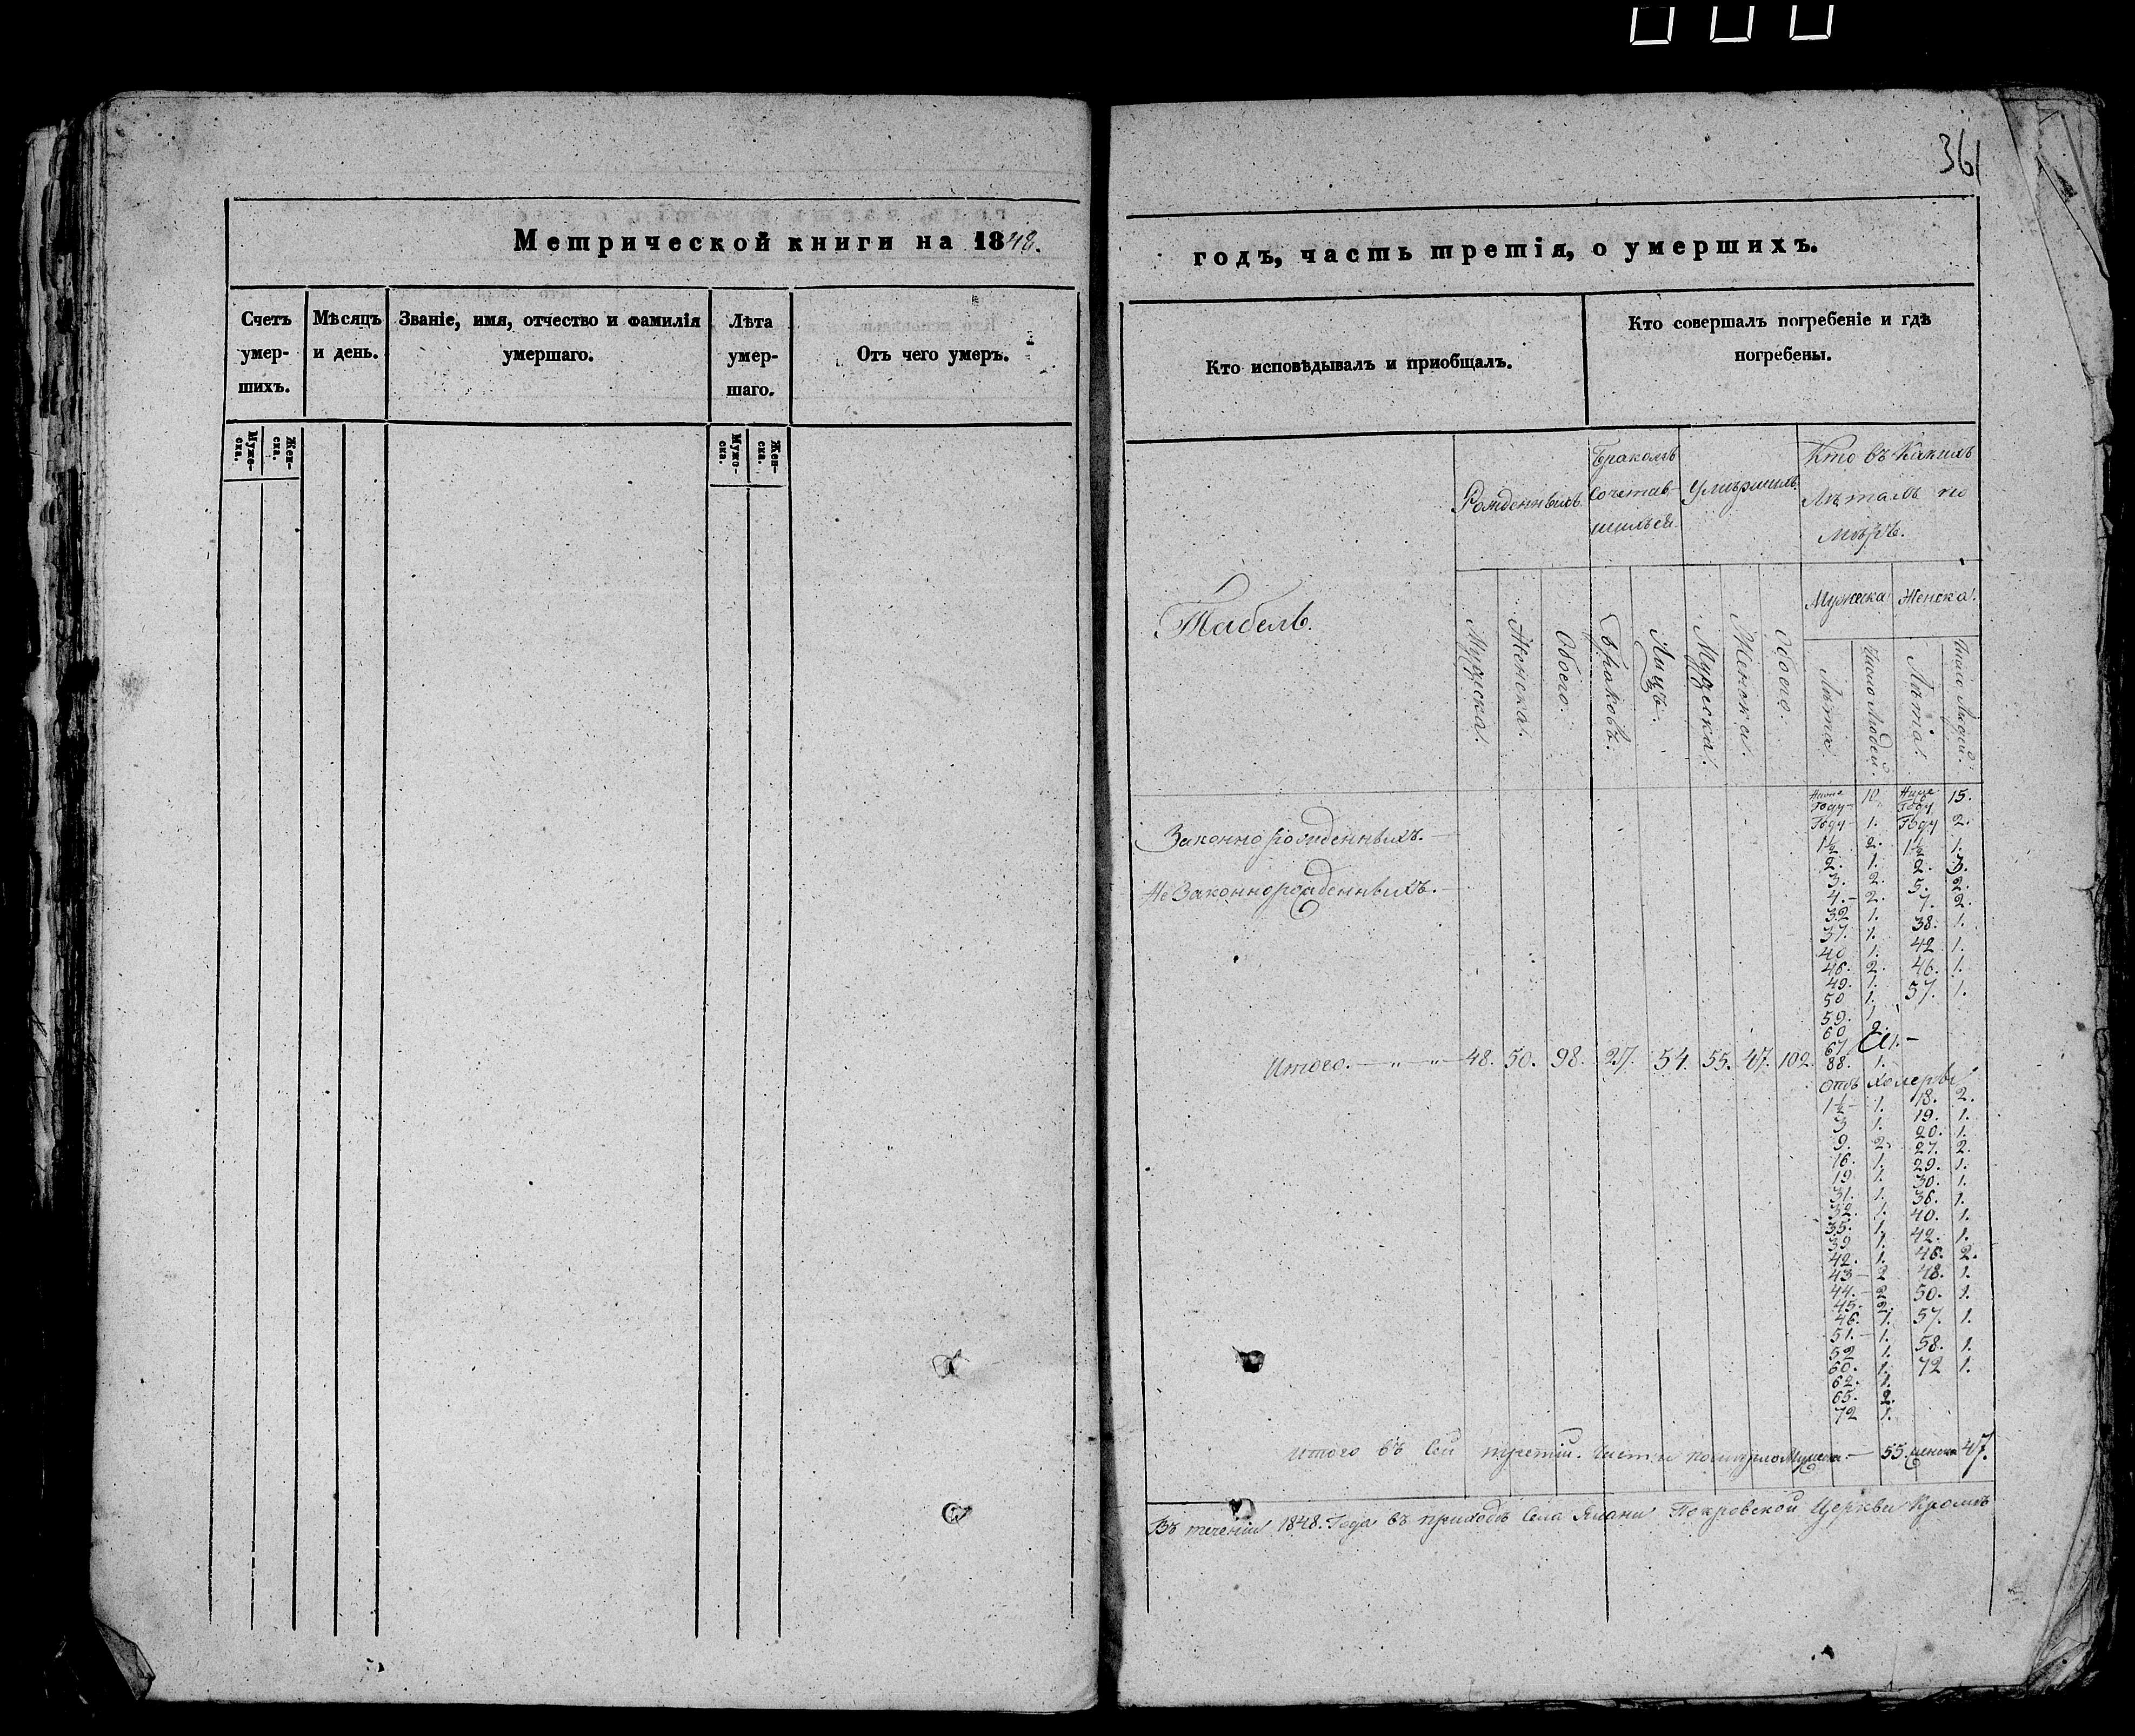 361
Метрической книги на 1848.
годъ, часть третія, о умершихъ.
Счетъ умер-шихъ.
Мѣсяцъ и день.
Званіе, имя, отчество и фамилія умершаго.
Лѣта умер-шаго.
Отъ чего умеръ.
Муже-ска.
Жен-ска.
Муже-ска.
Жен-ска.
Кто исповѣдывалъ и приобщалъ.
Кто совершалъ погребеніе и гдѣ погребены.
Табель.
Рожденныхъ.
Бракомъ сочетав-шихъся.
Умершихъ.
Кто въ какихъ лѣтахъ по меръ.
Мужеска Женска.
Мужска. Женска. Обоего. Браковъ. Лицъ. Мужеска. Женска. Обоего. Лѣта Число Людей. Лѣта. Число Людей.
Ниже Году 10. Ниже Году 15.
Году 1. Году 2.
1½ 2. 1½ 1.
2. 1. 2. 3.
3. 2. 5. 2.
4. 2. 7. 2.
32 1. 38. 1.
37. 1. 42 1.
40 1. 46. 1.
46. 2. 57. 1.
49. 1.
50 1.
59. 1.
60 2.
67 1.
88. 1.
Законно рожденныхъ.
Не Законнорожденныхъ.
Итого. 48. 50. 98. 27. 54. 55. 47. 102.
отъ холеры
1½ 1. 18. 2.
3 1. 19. 1.
9. 2. 20. 1.
16. 1. 27. 2.
19 1. 29. 1.
31. 1. 30. 1.
32. 1. 36. 1.
35. 1. 40. 1.
39 1. 42. 1.
42. 1. 46. 2.
43 2 48. 1.
44. 2 50. 1.
45. 2. 57. 1.
46. 1. 58. 1.
51. 1. 72 1.
52 1.
60. 1.
62. 1.
65. 2.
72 1.
Итого въ сей третій. части померло Мужеска 55 женска 47.
Въ теченіи 1848. Года въ приходѣ Села Покровской Церкви кромѣ